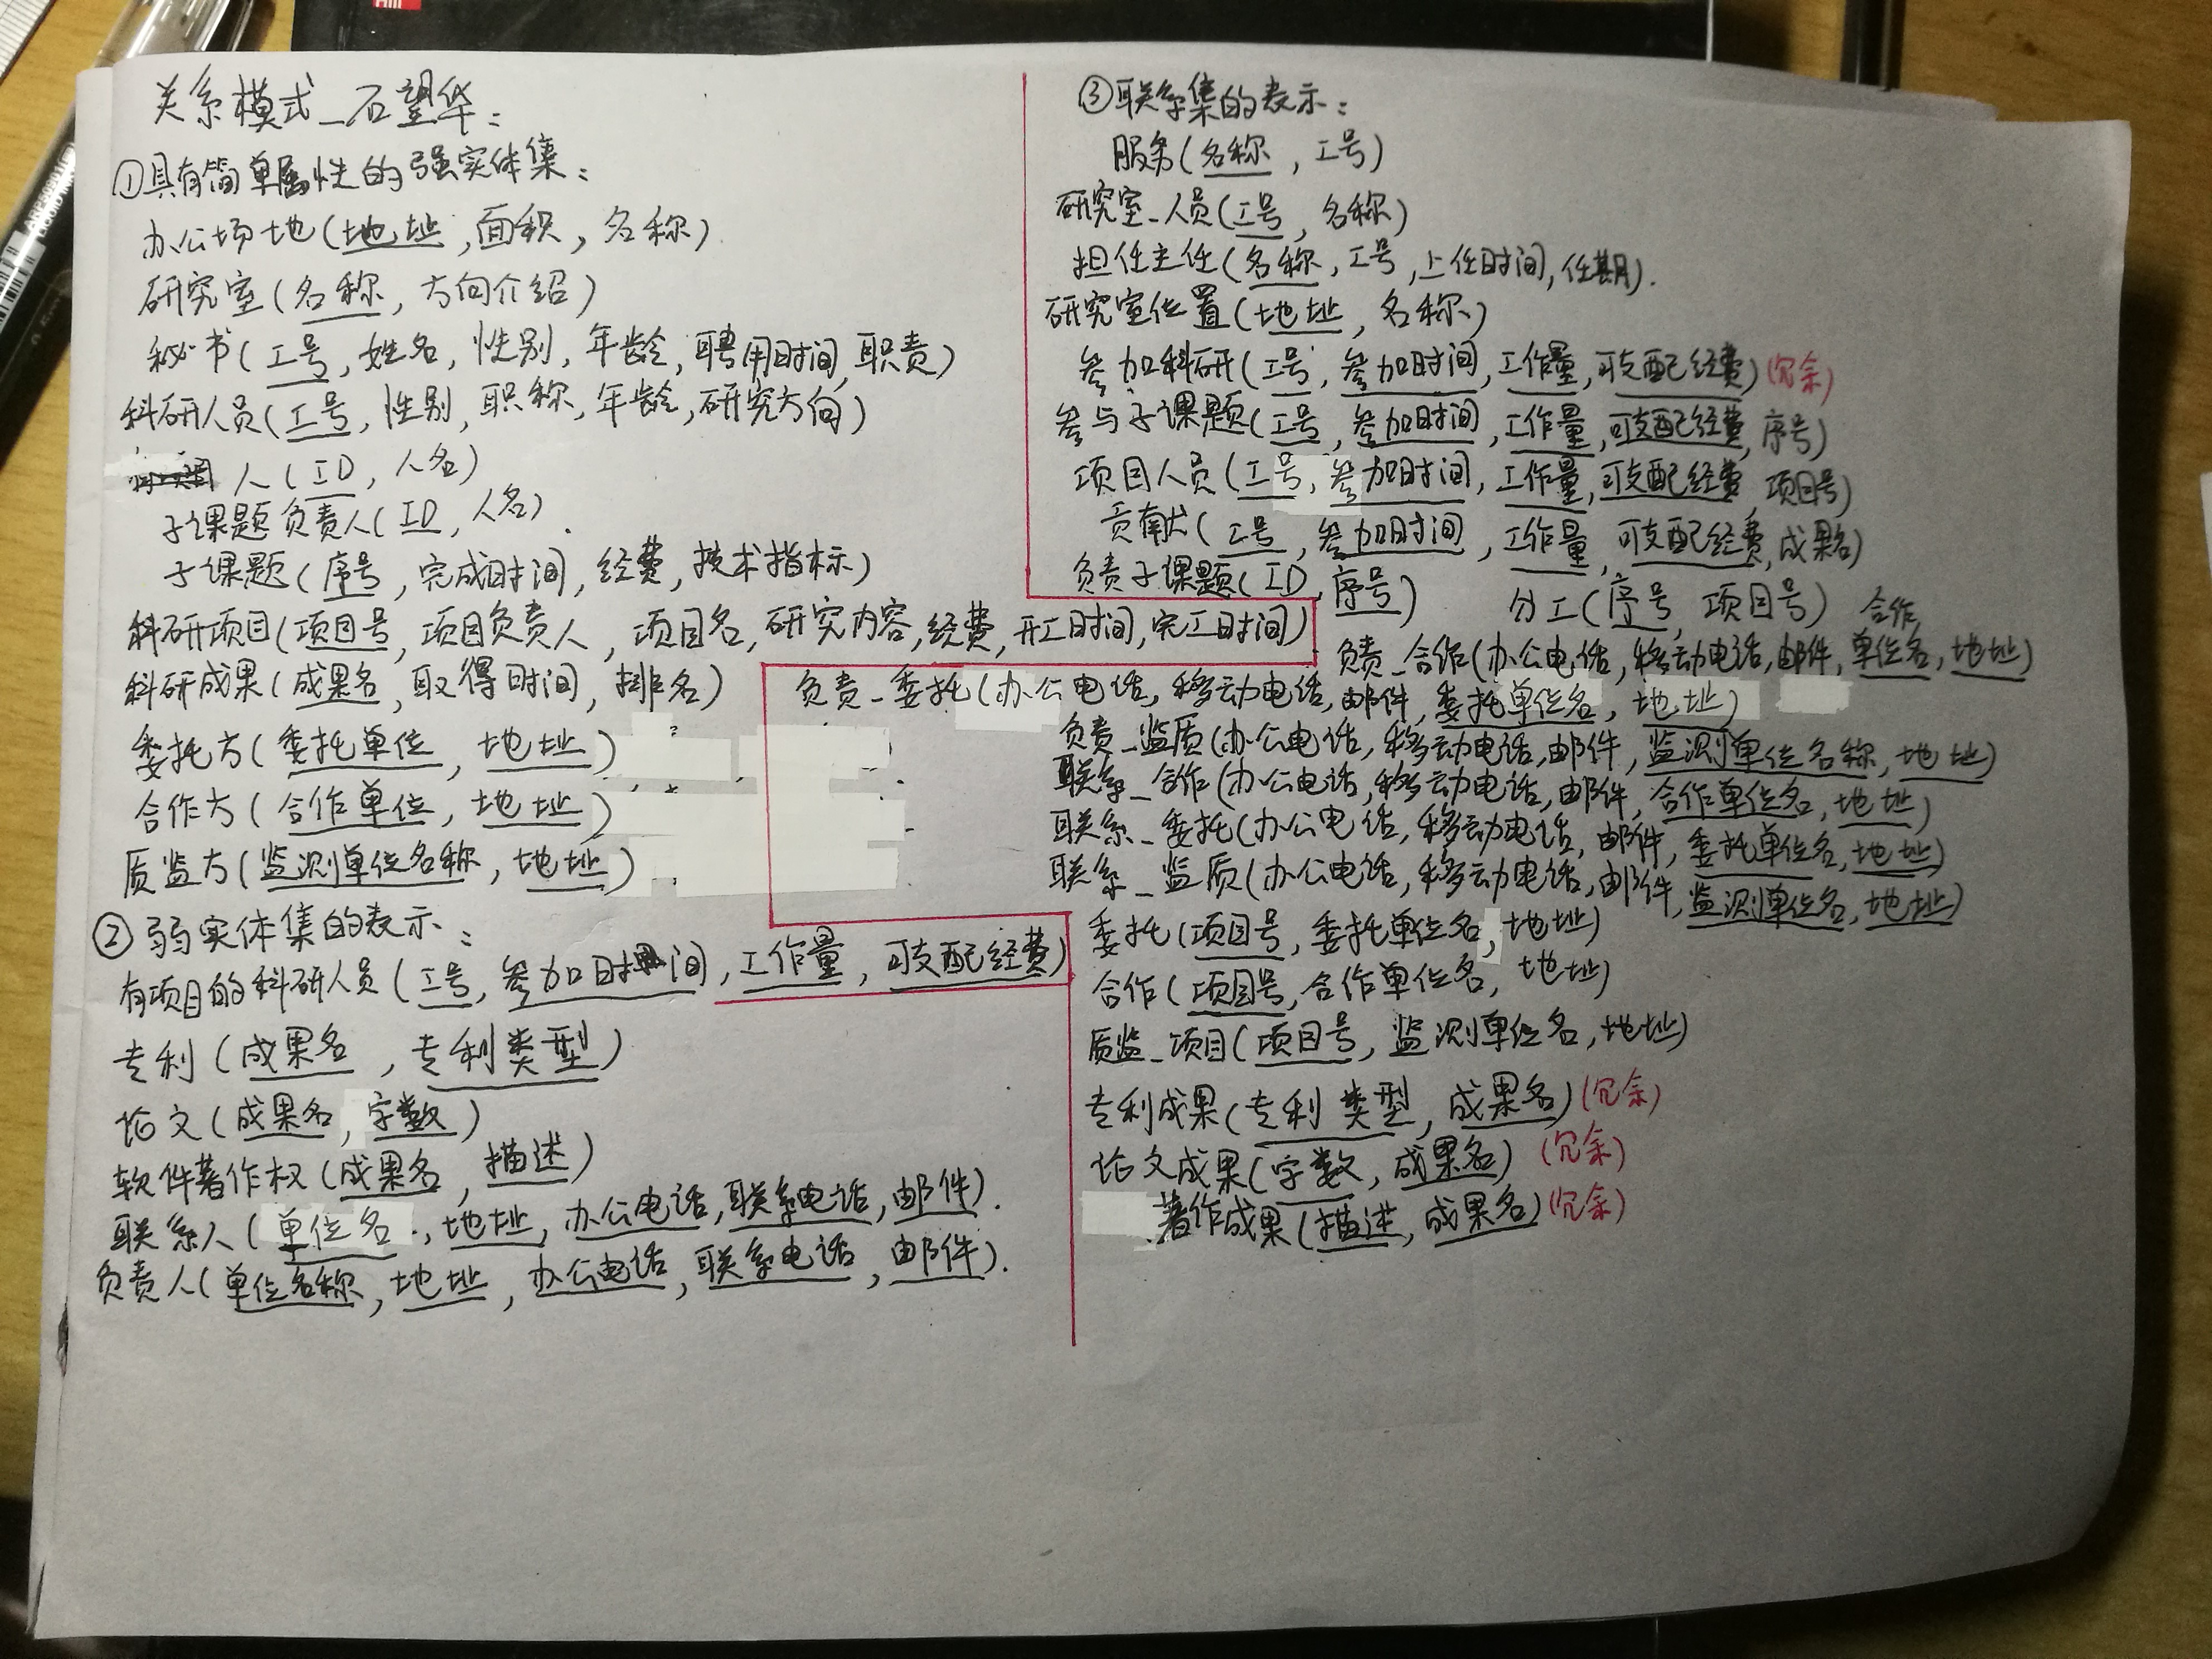 关系模式_石望华：
①具有简单属性的强实体集：
办公场地(地址,面积,名称)
研究室(名称,方向介绍)
秘书(工号,姓名,性别,年龄,聘用时间,职责)
科研人员(工号,性别,职称,年龄,研究方向)
人(ID,人名)
子课题负责人(ID,人名).
子课题(序号,完成时间,经费,技术指标)
科研项目(项目号,项目负责人,项目名,研究内容,经费,开工时间,完工时间)
科研成果(成果名,取得时间,排名)
委托方(委托单位,地址)
合作方(合作单位,地址)
质监方(监测单位名称,地址)
②弱实体集的表示：
有项目的科研人员(工号,参加时间,工作量,可支配经费)
专利(成果名,专利类型)
论文(成果名,字数)
软件著作权(成果名,描述)
联系人(单位名,地址,办公电话,联系电话,邮件).
负责人(单位名称,地址,办公电话,联系电话,邮件).
③联系集的表示：
服务(名称,工号)
研究室_人员(工号,名称)
担任主任(名称,工号,上任时间,任期).
研究室位置(地址,名称)
参加科研(工号,参加时间,工作量,可支配经费)(冗余)
参与子课题(工号,参加时间,工作量,可支配经费,序号)
项目人员(工号,参加时间,工作量,可支配经费,项目号)
贡献(工号,参加时间,工作量,可支配经费,成果名)
负责子课题(ID,序号) 分工(序号,项目号)
合作
负责_合作(办公电话,移动电话,邮件,单位名,地址)
负责_委托(办公电话,移动电话,邮件,委托单位名,地址)
负责_监质(办公电话,移动电话,邮件,监测单位名称,地址)
联系_合作(办公电话,移动电话,邮件,合作单位名,地址)
联系_委托(办公电话,移动电话,邮件,委托单位名,地址)
联系_监质(办公电话,移动电话,邮件,监测单位名,地址)
委托(项目号,委托单位名,地址)
合作(项目号,合作单位名,地址)
质监_项目(项目号,监测单位名,地址)
专利成果(专利类型,成果名)(冗余)
论文成果(字数,成果名)(冗余)
著作成果(描述,成果名)(冗余)